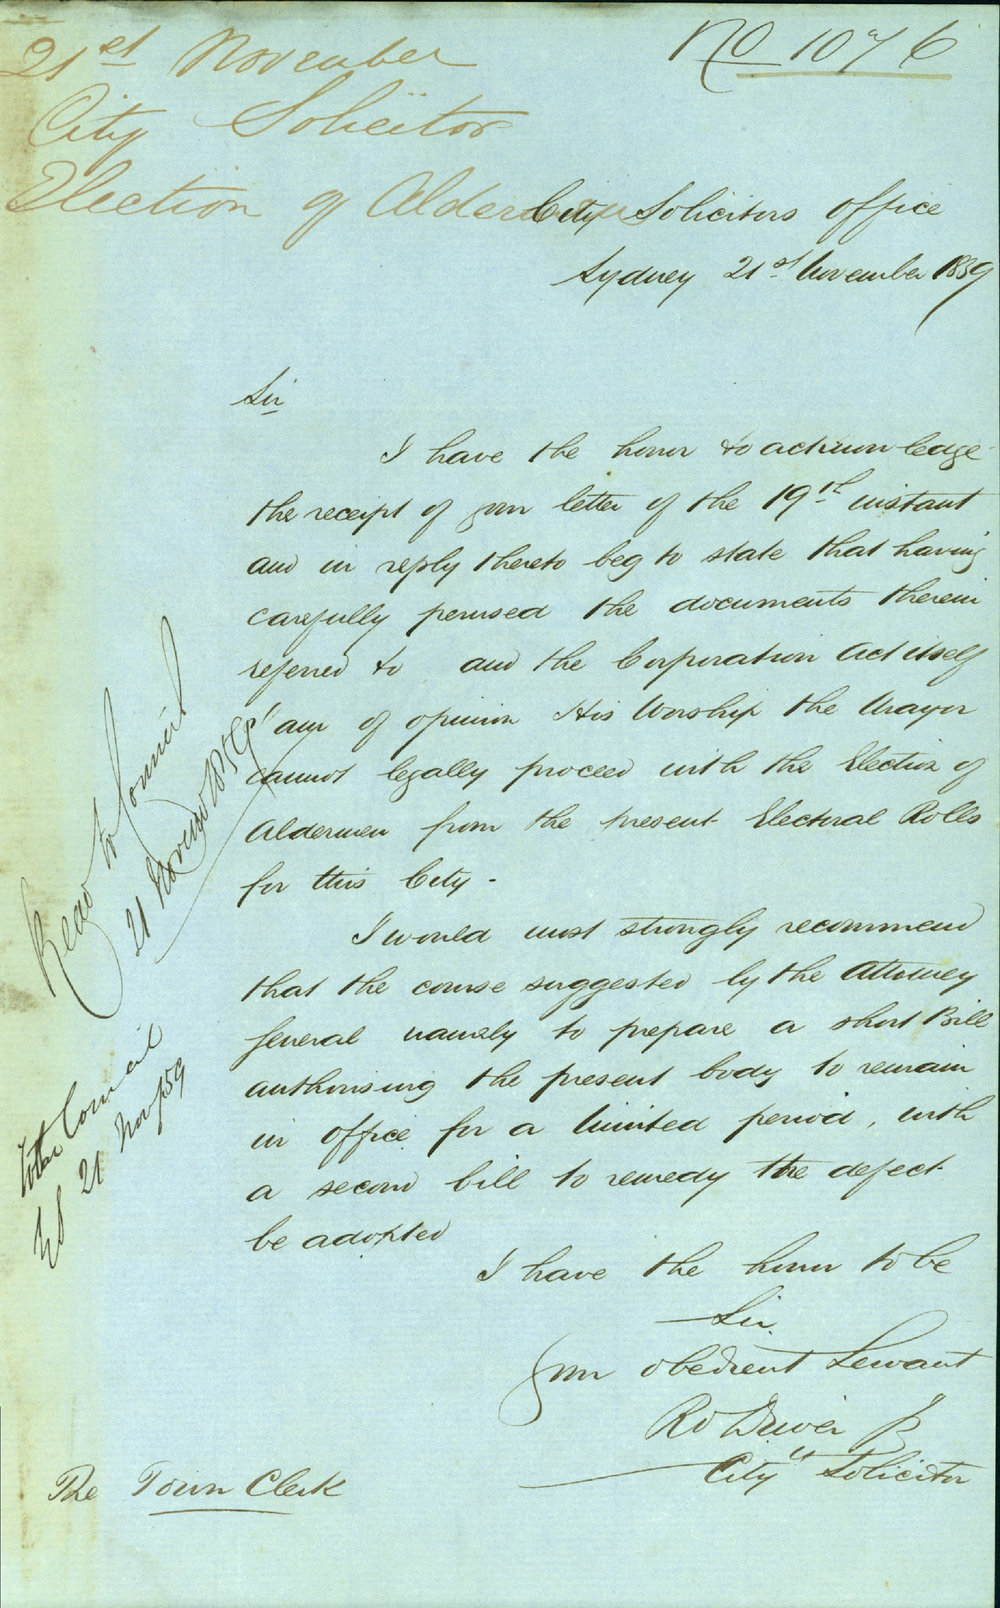 21st November
City Solicitor
Election of Aldermen
No 1076
City Solicitors Office
Sydney 21st November 1859
Sir
I have the honor to acknowledge
the receipt of your letter of the 19th instant
and in reply thereto beg to state that having
carefully perused the documents therein
referred to and the Corporation Act itself
I am of opinion His Worship the Mayor
cannot legally proceed with the Election of
Aldermen from the present Electoral Rolls
for this City -
I would most strongly recommend
that the course suggested by the Attorney
General namely to prepare a short Bill
authorising the present body to remain
in office for a limited period, with
a second bill to remedy the defect
be adopted
I have the honor to be
Sir
Your obedient Servant
City Solicitor
The Town Clerk
Read to Council
21 November 1859
Council
21 Nov/59